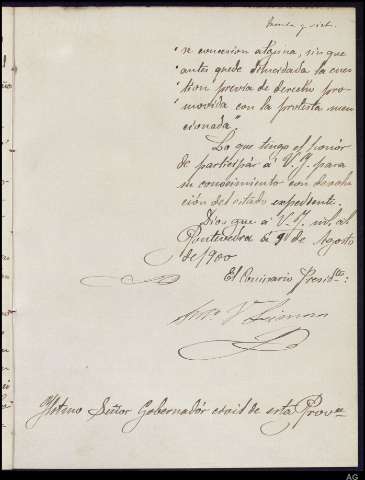 treinta y siet.
"se concesion alguna, sin que
"antes quede dilucidada la cues
"tion previa de derecho pro-
"movida con la protesta men-
"cionada".
Lo que tengo el honór
de participár á V.I. para
su conocimiento con devolu
ción del citado expediente.
Dios gue á V.I. m. a.
Pontevedra á 9 de Agosto
de 1900
El Comisario Presidte:
Yltmo Señor Gobernadór civil de esta Provca
AG